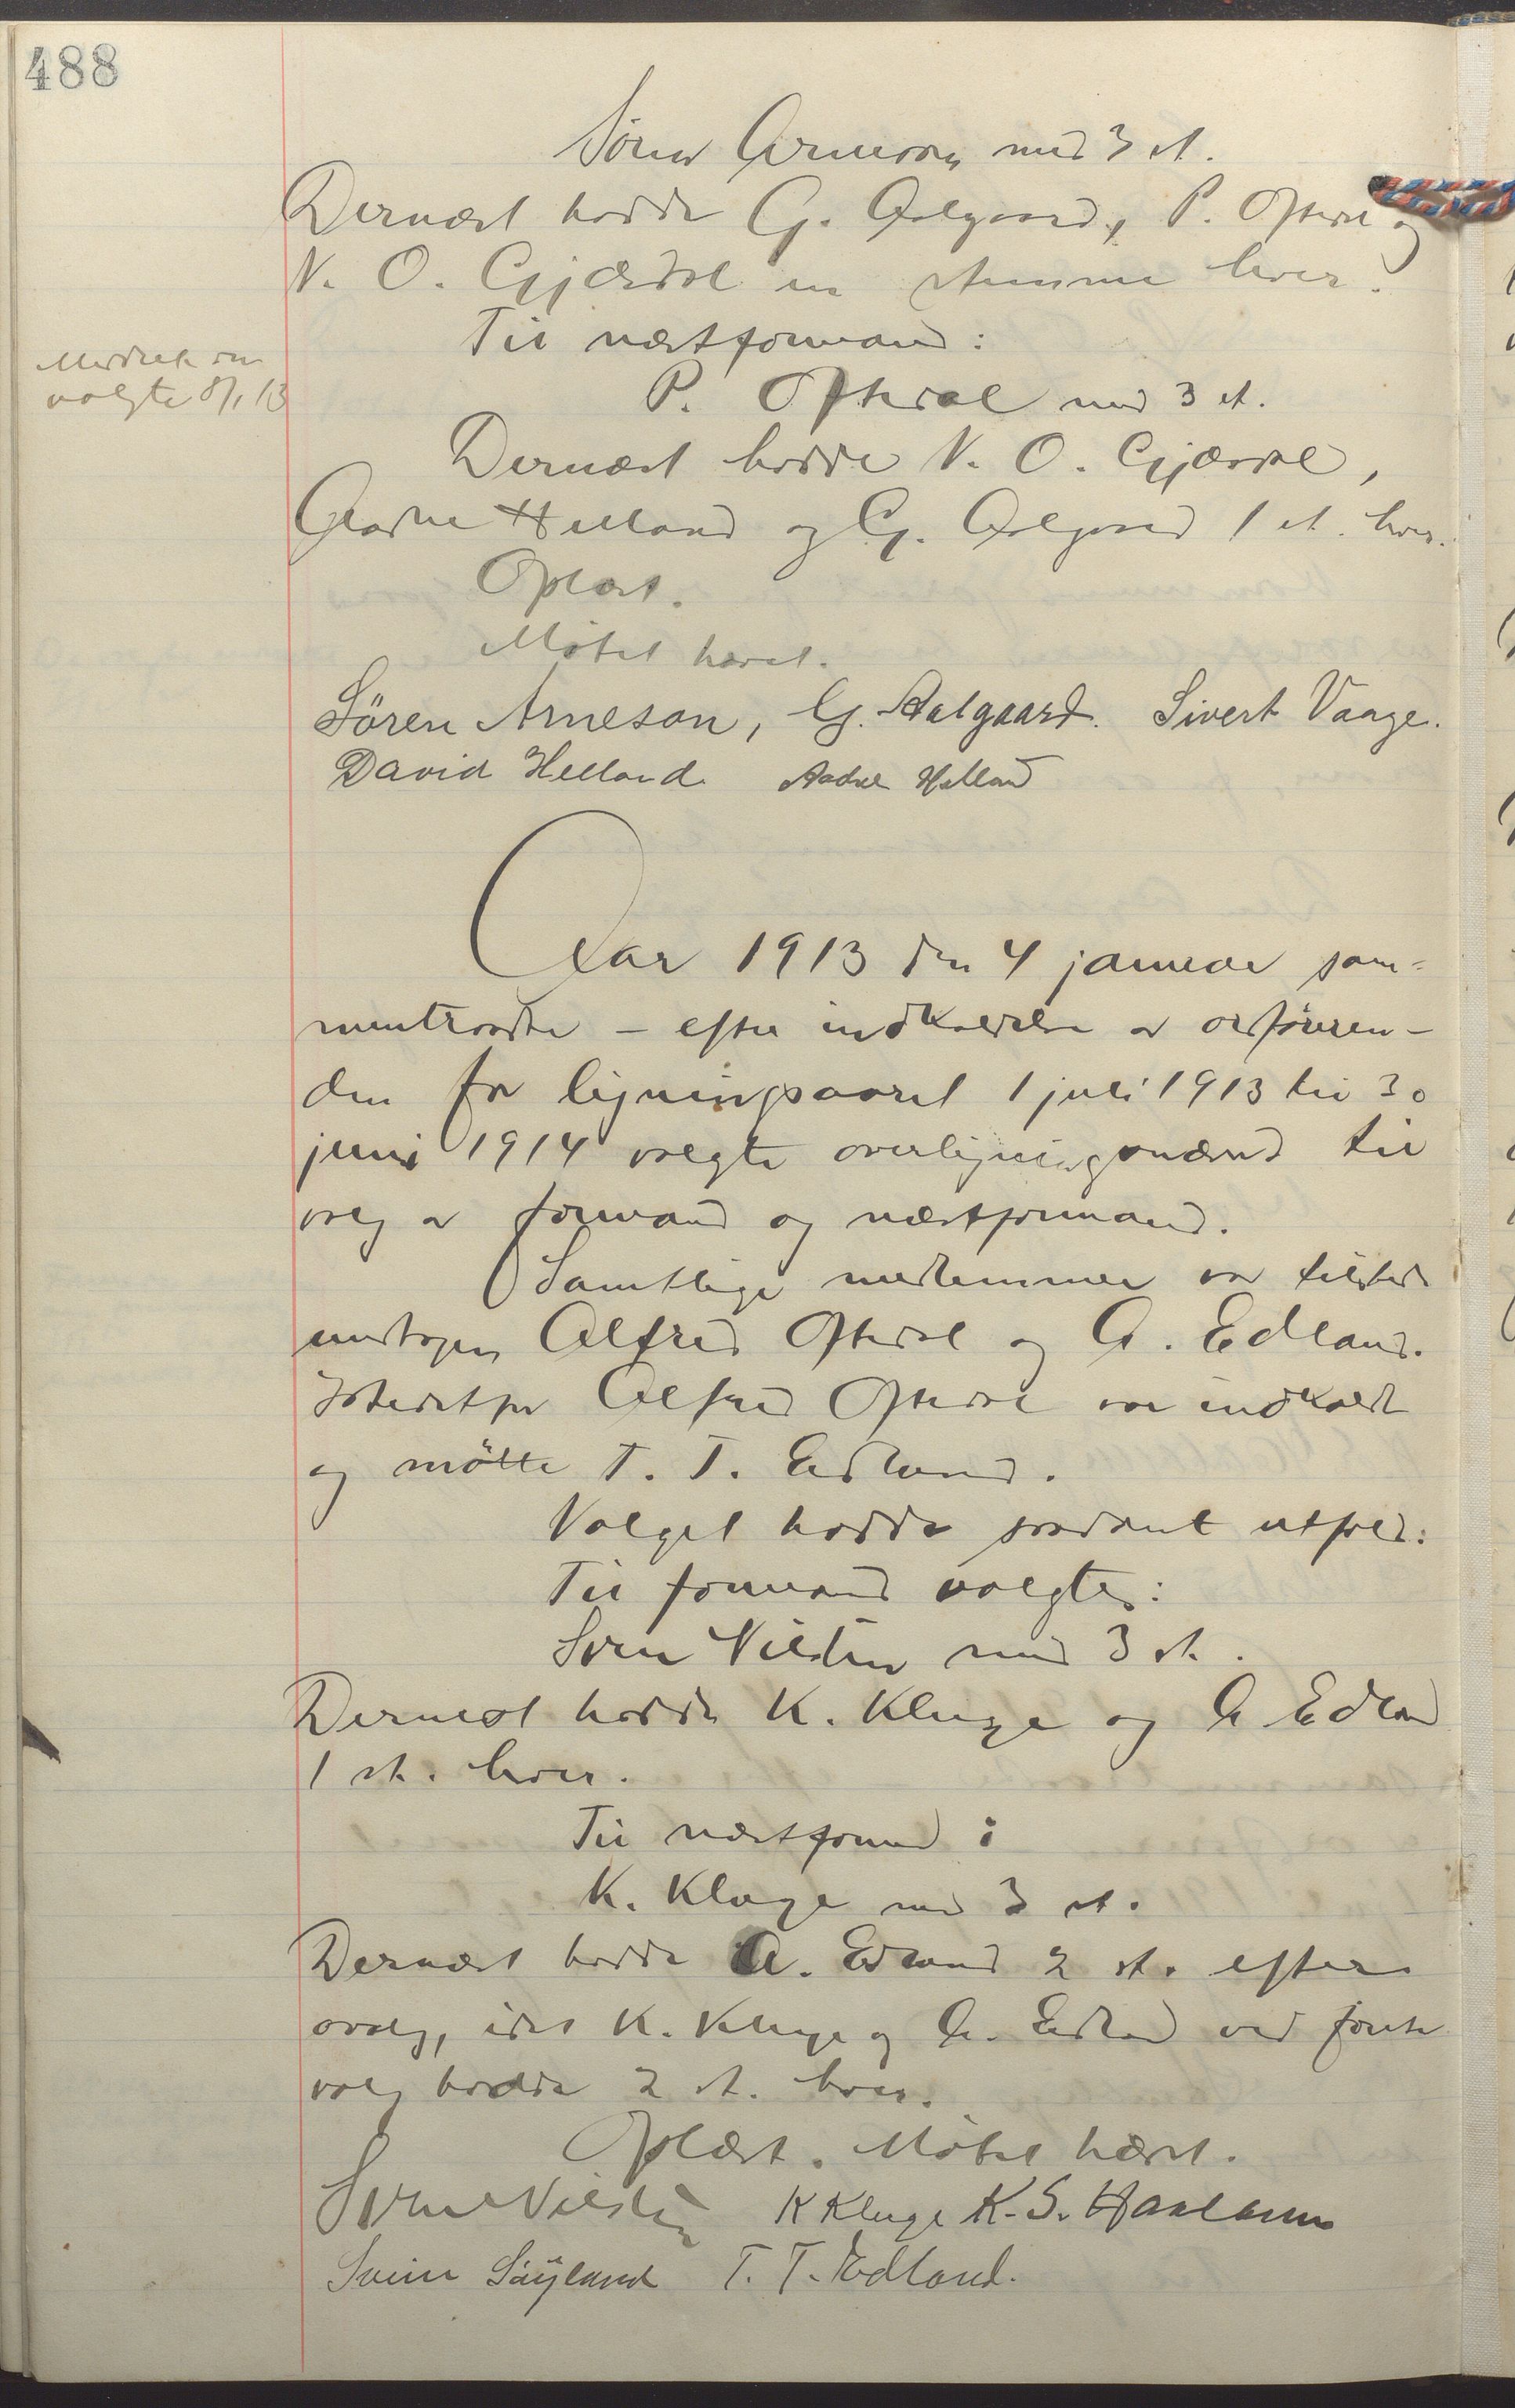 488
Søren Arneson med 3 st.
Dernæst hadde G. Aalgaard, P. Oftedal og
N. O. Gjædal en stemme hver.
Til næstformand:
Meddelt de
valgte 8/1 13
P. Oftedal med 3 st.
Dernæst hadde N. O. Gjædal,
Helland og G. Aalgaard 1 st. hver.
Oplæst.
Møtet hævet.
Sören Arneson, G. Aalgaard. Sivert Vaage.
David Helland Aadne Helland
Aar 1913 den 4 januar sam-
mentraadte – efter indkaldelse av ordføren-
den for ligningsaaret 1 juli 1913 til 30
juni 1914 valgte overligningsnævnd til
valg av formand og næstformand.
Samtlige medlemmer var tilstede
undtagen Alfred Oftedal og A. Edland.
Istedetfor Alfred Oftedal var indkaldt
og møtte T. T. Edland.
Valget hadde saadant utfald:
Til formand valgtes:
Sven Vilstein med 3 st.
Dernæst hadde K. Kluge og A Edland
1 st. hver.
Til næstformd:
K. Kluge med 3 st.
Dernæst hadde A. Edland 2 st. efter
omvalg, idet K. Kluge og A. Edland ved første
valg hadde 2 st. hver.
Oplæst. Møtet hævet.
Sven Vilstein K Kluge K. S. Haaland
Svein Söyland T. T. Edland.